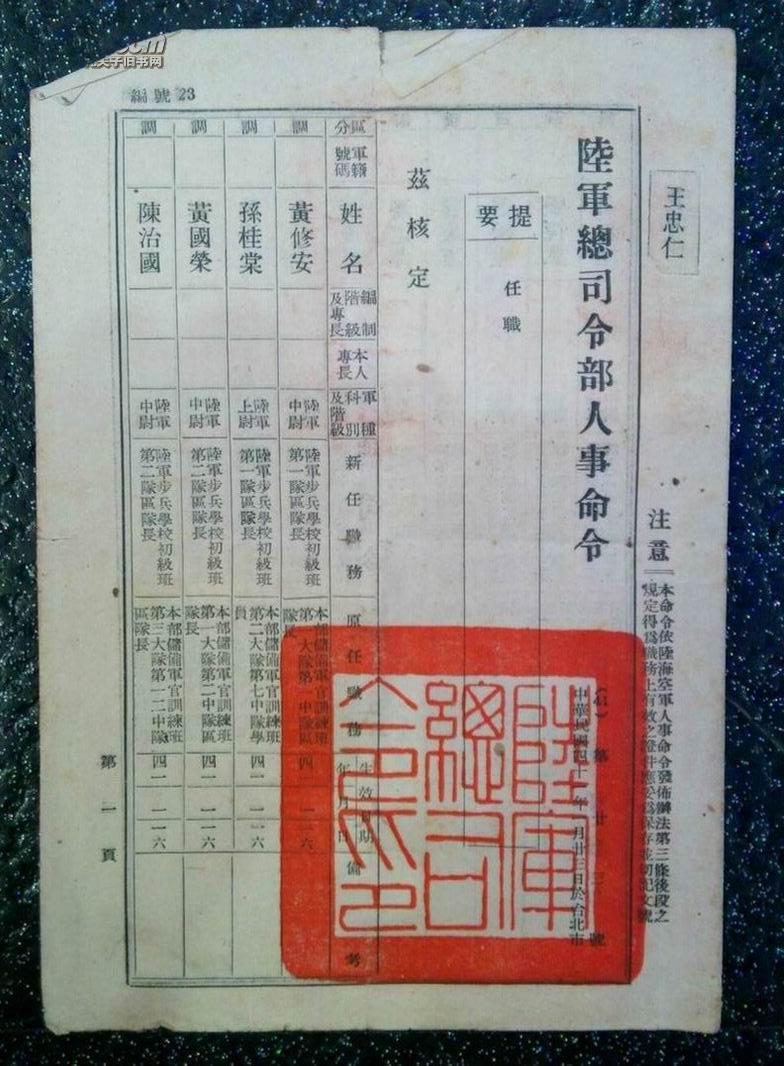 編號 23
王忠仁
注意
本命令依陸海空軍人事命令發佈辦法第三條後段之
規定得爲職務上有效之證件應妥爲保存並切記文號
陸軍總司令部人事命令
(41) 第廿三號
中華民國四十一年一月廿三日於台北市
提要
任職
茲核定
區分
軍籍號碼
姓名
編制階級及專長
本人專長
軍種科別及階級
新任職務
原任職務
生效日期
年月日
備考
調
黃修安
陸軍中尉
陸軍步兵學校初級班
第一隊區隊長
本部儲備軍官訓練班
第一大隊第一中隊區
隊長
四一 一 一六
調
孫桂棠
陸軍上尉
陸軍步兵學校初級班
第一隊區隊長
本部儲備軍官訓練班
第二大隊第七中隊學
員
四一 一 一六
調
黃國榮
陸軍中尉
陸軍步兵學校初級班
第二隊區隊長
本部儲備軍官訓練班
第一大隊第二中隊區
隊長
四一 一 一六
調
陳治國
陸軍中尉
陸軍步兵學校初級班
第二隊區隊長
本部儲備軍官訓練班
第三大隊第一二中隊
區隊長
四一 一 一六
第一頁
陸軍
總司
令印